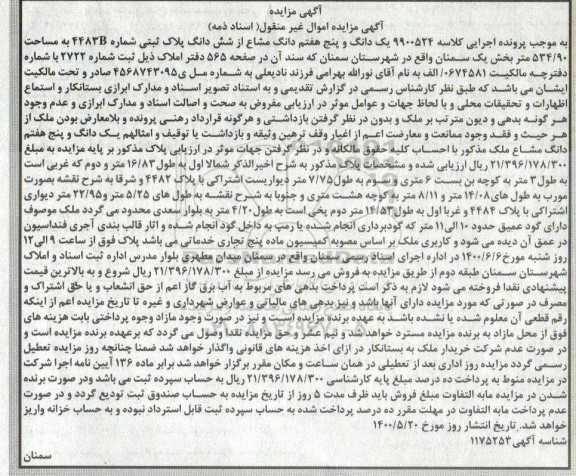 آگهی مزایده
آگهی مزایده اموال غیر منقول( اسناد ذمه)
به موجب پرونده اجرایی کلاسه ۹۹۰۰۵۲۴ یک دانگ و پنج هفتم دانگ مشاع از شش دانگ پلاک ثبتی شماره ۴۴۸۳B به مساحت
۵۳۴/۹۰ متر بخش یک سمنان واقع در شهرستان سمنان که سند آن در صفحه ۵۶۵ دفتر املاک ذیل ثبت شماره ۲۷۲۲ با شماره
دفترچه مالکیت ۰۶۷۴۵۸۱/ الف به نام آقای نورالله بهرامی فرزند نادیعلی به شماره ملی ۴۵۶۸۷۴۳۰۹۵ صادر و تحت مالکیت
ایشان می باشد که طبق نظر کارشناس رسمی در گزارش تقدیمی و به استناد تصویر اسناد و مدارک ابرازی بستانکار و استماع
اظهارات و تحقیقات محلی و با لحاظ جهات و عوامل موثر در ارزیابی مفروض به صحت و اصالت اسناد و مدارک ابرازی و عدم وجود
هر گونه بدهی و دیون مترتب بر ملک و بدون در نظر گرفتن بازداشتی و هرگونه قرارداد رهنی پرونده و بلامعارض بودن ملک از
هر حیث و فقد وجود ممانعت و معارضت اعم از اغیار وقف ترهین وثیقه و بازداشت یا توقیف و امثالهم یک دانگ و پنج هفتم
دانگ مشاع ملک مذکور با احساب کلیه حقوق مالکانه و در نظر گرفتن جهات موثر در ارزیابی پلاک مذکور بر پایه مزایده به مبلغ
۲۱/۳۹۶/۱۷۸/۳۰۰ ریال ارزیابی شده و مشخصات پلاک مذکور به شرح اخیرالذکر شمالا اول به طول ۱۶/۸۳ متر و دوم که غربی است
به طول ۳ متر به کوچه بن بست ۶ متری و سوم به طول ۷/۷۵ متر دیواریست اشتراکی با پلاک ۴۴۸۲ و شرقا به شرح نقشه بصورت
مورب به طول های ۱۴/۰۸ متر و ۸/۱۱ متر به کوچه هشت متری و جنوبا به شرح نقشه به طول های ۵/۲۵ متر و ۲۲/۹۵ متر دیواری
اشتراکی با پلاک ۴۴۸۴ و غربا اول به طول ۱۴/۵۳ متر دوم پخی است به طول ۴/۲۰ متر به بلوار سعدی محدود می گردد ملک موصوف
دارای گود عمیق حدود ۱۰ الی ۱۱ متر که گودبرداری انجام شده یا رمپ به داخل گود انجام شده و آثار قالب بندی آجری فنداسیون
در عمق آن دیده می شود و کاربری ملک بر اساس مصوبه کمیسیون ماده پنج تجاری خدماتی می باشد پلاک فوق از ساعت ۹ الی ۱۲
روز شنبه مورخ ۱۴۰۰/۶/۶ در اداره اجرای اسناد رسمی سمنان واقع در سمنان میدان مطهری بلوار مدرس اداره ثبت اسناد و املاک
شهرستان سمنان طبقه دوم از طریق مزایده به فروش می رسد مزایده از مبلغ ۲۱/۳۹۶/۱۷۸/۳۰۰ ریال شروع و به بالاترین قیمت
پیشنهادی نقدا فروخته می شود لازم به ذکر است پرداخت بدهی های مربوط به آب برق گاز اعم از حق انشعاب و یا حق اشتراک و
مصرف در صورتی که مورد مزایده دارای آنها باشد و نیز بدهی های مالیاتی و عوارض شهرداری و غیره تا تاریخ مزایده اعم از اینکه
رقم قطعی آن معلوم شده یا نشده باشد به عهده برنده مزایده است و نیز در صورت وجود مازاد وجوه پرداختی بابت هزینه های
فوق از محل مازاد به برنده مزایده مسترد خواهد شد و نیم عشر و حق مزایده نقدا وصول می گردد که برعهده برنده مزایده است و
در صورت عدم شرکت خریدار ملک به بستانکار در ازای اخذ هزینه های قانونی واگذار خواهد شد ضمنا چنانچه روز مزایده تعطیل
رسمی گردد مزایده روز اداری بعد از تعطیلی در همان ساعت و مکان مقرر برگزار خواهد شد برابر ماده ۱۳۶ آیین نامه اجرا شرکت
در مزایده منوط به پرداخت ده درصد مبلغ پایه کارشناسی ۲۱/۳۹۶/۱۷۸/۳۰۰ ریال به حساب سپرده ثبت می باشد ودر صورت برنده
شدن در مزایده مابه التفاوت مبلغ فروش باید ظرف مدت ۵ روز از تاریخ مزایده به حساب صندوق ثبت تودیع گردد و در صورت
عدم پرداخت مابه التفاوت در مهلت مقرر ده درصد پرداخت شده به حساب سپرده ثبت قابل استرداد نبوده و به حساب خزانه واریز
خواهد شد. تاریخ انتشار روز مورخ ۱۴۰۰/۵/۲۰
شناسه آگهی ۱۱۷۵۲۵۳
سمنان